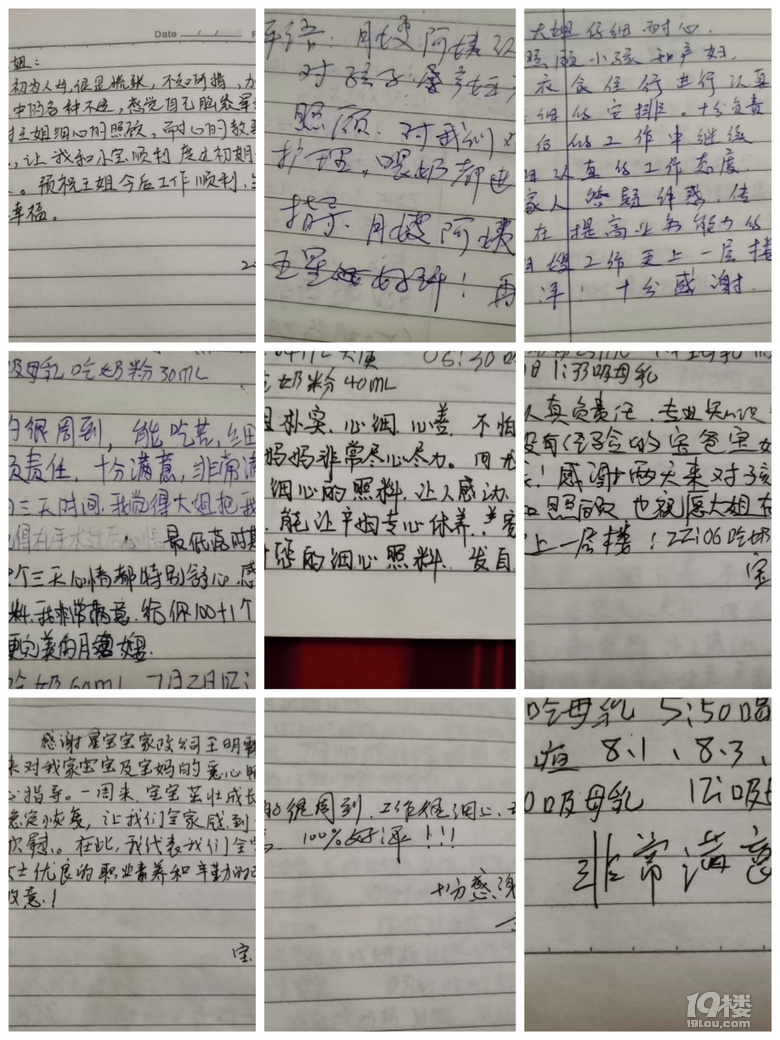 Date
姐:
初为人母,很是慌张,不知所措,
中的各种不适,感觉自己
王姐细心的照顾,耐心的教
,让我和小宝顺利度过初期
。预祝王姐今后工作顺利,
幸福。
评语:月嫂阿姨
对孩子
照顾.对我们
护理,喂奶都
指导.月嫂阿姨
五星好评!再
大姐仔细耐心.
照顾小孩和产妇.
衣食住行进行认真
细的安排。十分负责
的工作中继续
认真的工作态度.
家人答疑解惑.
在提高业务能力的
嫂工作更上一层楼
十分感谢.
吸母乳吃奶粉30ML
的很周到,能吃苦,细
负责任,十分满意,非常满
三天时间.我觉得大姐把我
最低落时期
个三天心情都特别舒心 感
料.我非常满意.给你100+1个
更完美的月嫂.
7月2日
06:30
吃奶粉40ML
朴实.心细.心善.不怕
妈妈非常尽心尽力。
细心的照料.让人感动.
.能让产妇专心休养.
的细心照料.发自
1:33吸母乳
认真负责任.专业知识
没有经验的宝爸宝妈
!感谢两天来对孩
照顾 也祝愿大姐在
上一层楼!22:06吃奶
宝
感谢星宝宝家政公司王明
来对我家宝宝及宝妈的悉心照
心指导。一周来,宝宝茁壮成长
稳定恢复,让我们全家感到
欣慰。在此,我代表我们全
女士优良的职业素养和辛勤的
敬意!
宝
的很周到.工作很细心.
100%好评!!!
十分感谢
吃母乳 5:50喝
疸 8.1、8.3、
吸母乳 12:吸
非常满意
19楼
19lou.com